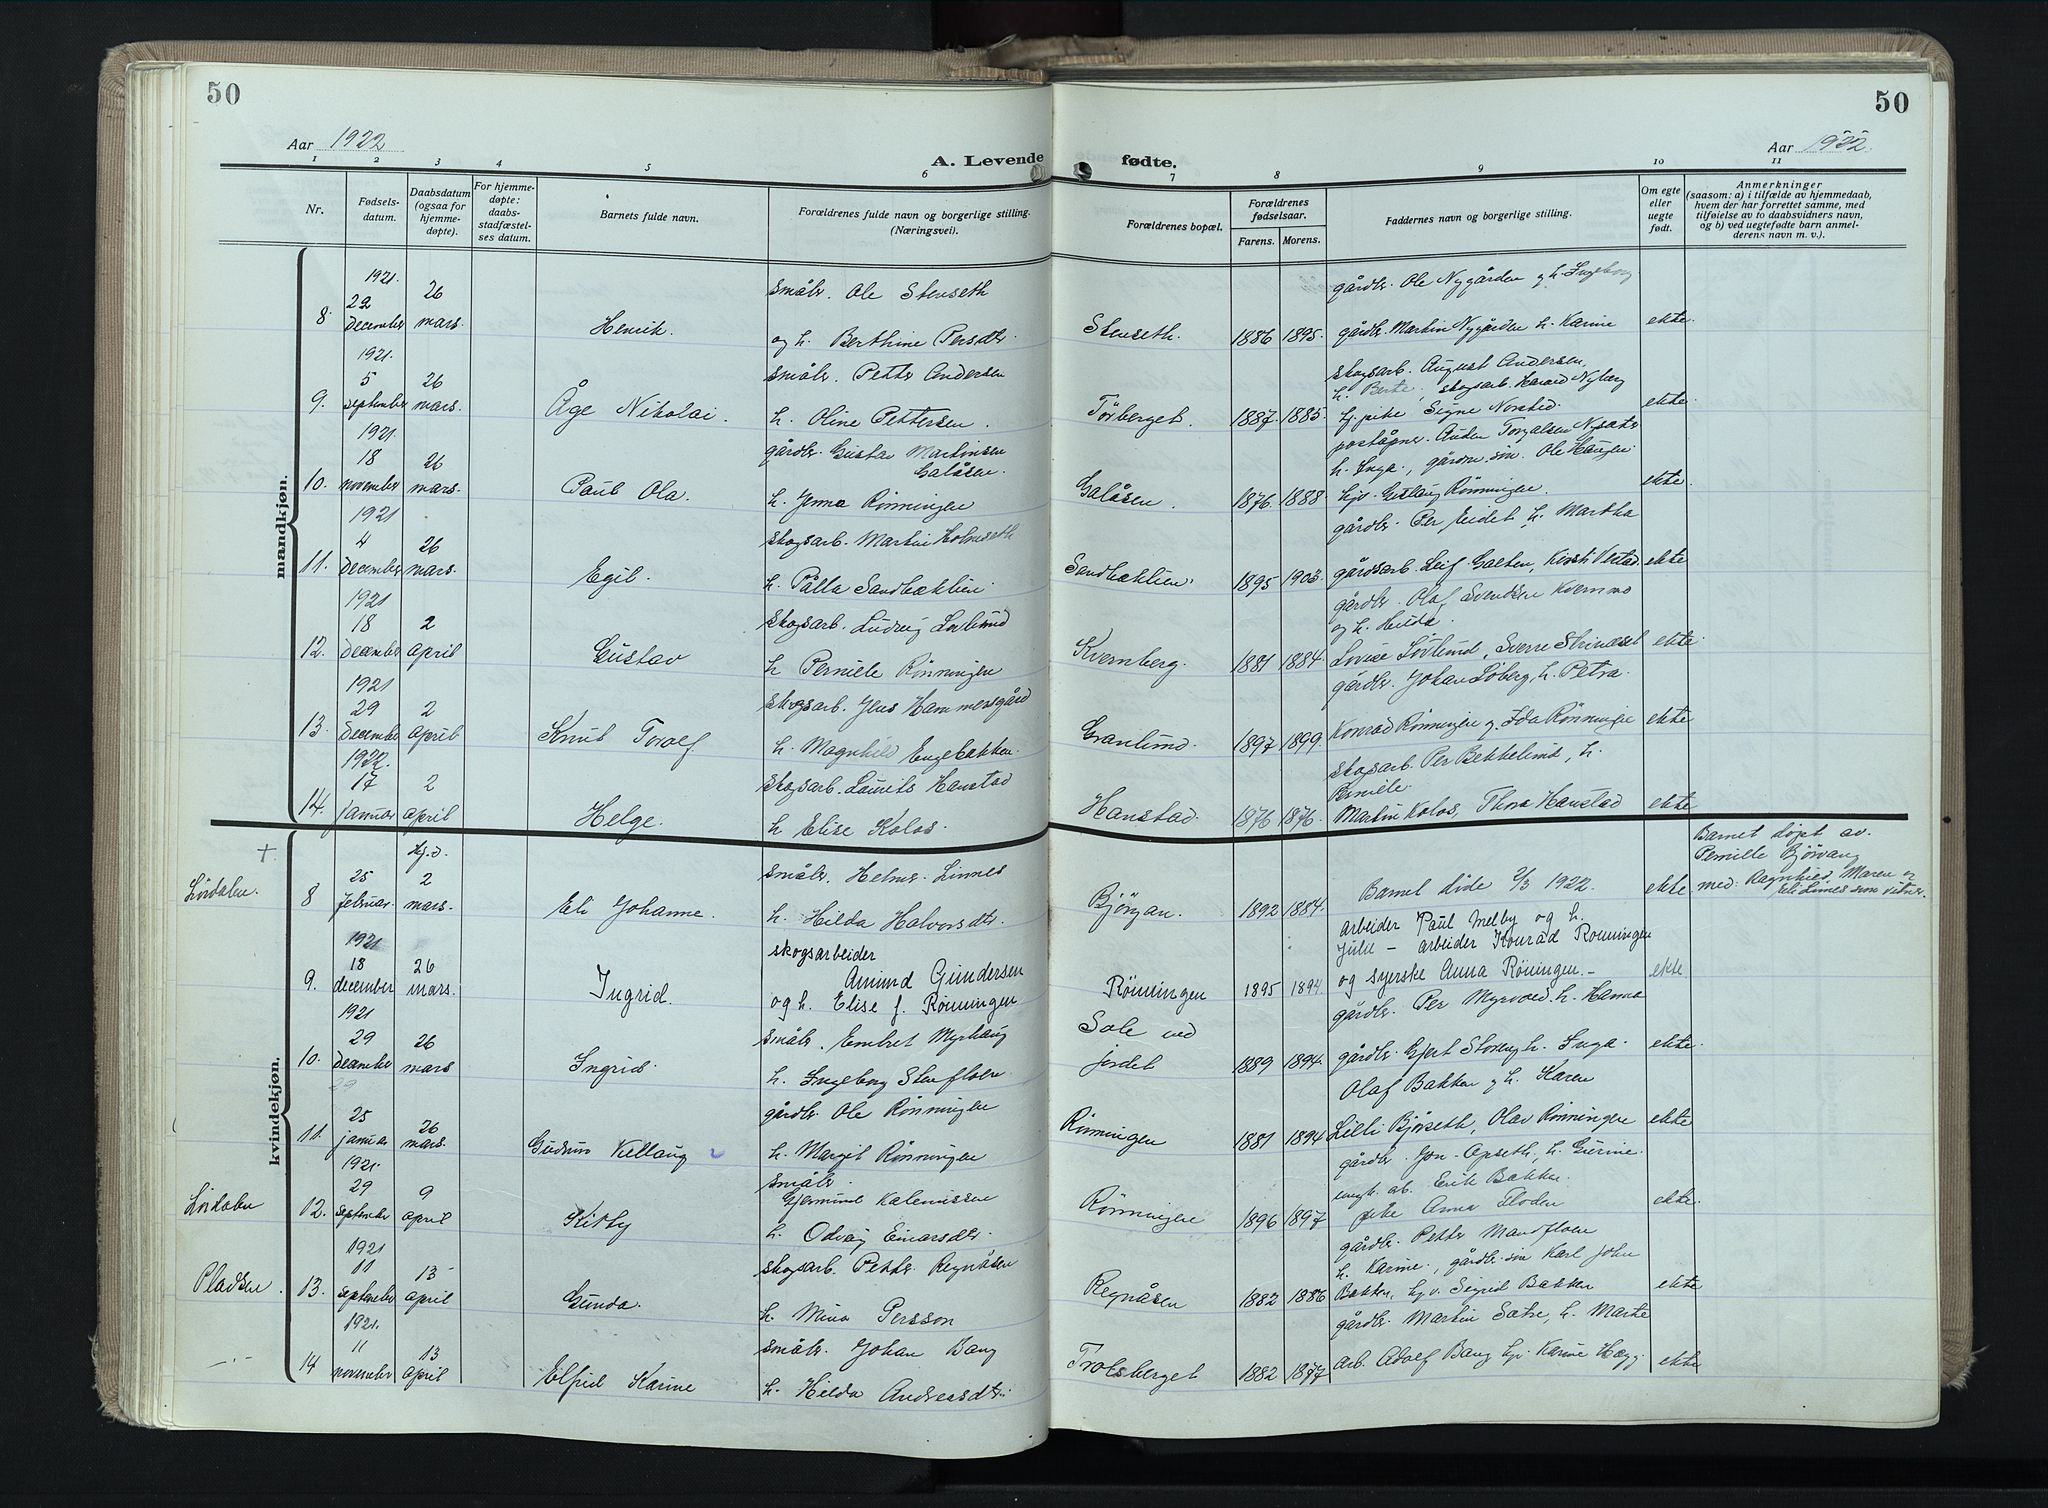 50
50
Aar 1922
Aar 1922.
A. Levende fødte.
1 2 3 4 5 6 7 8 9 10 11
Nr.
Fødsels-
datum.
Daabsdatum
(ogsaa for
hjemme-
døpte).
For hjemme-
døpte:
daabs-
stadfæstel-
ses datum.
Barnets fulde navn.
Forældrenes fulde navn og borgerlige stilling.
(Næringsvei).
Forældrenes bopæl.
Forældrenes
fødselsaar.
Farens. Morens.
Faddernes navn og borgerlige stilling.
Om egte
eller
uegte
født.
Anmerkninger
(saasom: a) i tilfælde av hjemmedaab,
hvem der har forrettet samme, med
tilføielse av to daabsvidners navn,
og b) ved uegtefødte barn anmel-
derens navn m. v.).
mandkjøn.
8. 1921. 22 december 26 mars. Henrik.
småbr. Ole Stenseth
og h. Berthine Persdtr.
Stenseth. 1886 1895.
gårdbr. Ole Nygården og h. Ingeborg
gårdbr. Martin Nygården h. Karine
ekte.
9. 1921. 5 september 26 mars. Åge Nikolai.
småbr. Petter Andersen
h. Oline Pettersen.
Törberget. 1887. 1885.
skogsarb. August Andersen,
h. Berte, skogsarb. Harald Nyberg
hj. pike Signe Norsted.
ekte.
10. 1921. 18 november 26 mars. Paul Ola.
gårdbr. Gustav Martinsen
Galåsen.
h. Jenna Rønningen
Galåsen. 1876. 1888.
poståpner. Anden Torgalsen Nysæter
h. Inga, gårdm. søn. Ole Haugen
hjv. Gislaug Rønningen.
ekte.
11. 1921 4 december 26 mars. Egil.
skogsarb. Martin Holmseth
h. Pålla Sandbæklien
Sandbæklien. 1895 1903.
gårdbr. Per Eidet h. Martha
gårdsarb. Leif Galten, Kirsti Vestad
ekte
12. 1921 18 december 2 april Gustav
skogsarb. Ludvig Løvlund
h. Pernille Rønningen
Kvernberg. 1881 1884.
gårdbr. Olaf Svendsen Kvernmo
og h. Hilda.
Lovise Løvlund, Sverre Strindset
ekte
13. 1921 29 december 2 april Knut Toralf
skogsarb. Jens Hammersgård
h. Magnhild Engebakken.
Granlund. 1897 1899.
gårdbr. Johan Løberg, h. Petra.
Konrad Rønningen og Ida Rønningen
ekte
14. 1922. 17 januar 2 april Helge.
skogsarb. Laurits Hanstad
h Elise Kolos.
Hanstad. 1876 1876.
skogsarb. Per Bekkelund, h.
Pernille.
Martin Kolos, Thora Hanstad
ekte
kvindekjøn.
+
Lørdalen.
8 25 februar. Hj.d. 2 mars. Eli Johanne.
småbr. Helmer Linnes
h. Hilda Halvorsdtr.
Bjørgan. 1892 1884.
Barnet døde 2/3 1922.
ekte
Barnet døpt av.
Pernille Bjørvang
med. Ragnhild, Maren og
Eli Linnes som vitner.
9. 1921 18 december 26 mars. Ingrid.
skogsarbeider
Amund Gundersen
og h. Elise f. Rönningen
Rönningen 1895 1894.
arbeider Paul Melby og h.
Julie – arbeider Konrad Ronningen
og syerske Anna Röningen. –
ekte
10. 1921 29 december 26 mars Ingrid.
småbr. Embret Myrhaug
h. Ingeborg Stenfloen
Sole ved
jordet 1889 1894.
gårdbr. Per Myrvold. h. Hanna
gårdbr. Gjert Storeng h. Inga.
ekte.
29
11. 25 januar 26 mars. Gudrun Kellaug
gårdbr. Ole Rønningen
h. Margit Rønningen
Rønningen 1881 1894
Olaf Bakken og h. Karen
Lilli Bjørseth, Olav Rønningen
ekte
Lørdalen
12. 1921. 29 september 9 april Kitty
småbr.
Gjermund Kalemissen
h. Odvåg Einarsdtr.
Rønningen 1896 1897
gårdbr. Jon Opseth, h. Gurine.
ungk. arb. Erik Bakken.
pike Anna Floden
ekte.
Pladsen.
13. 1921 11 september 13 april Gunda.
skogsarb. Petter Regnåsen
h. Mina Persson
Regnåsen 1882 1886
gårdbr. Petter Mandfloen
h. Karine, gårdbr. søn Karl John
Bakken, hjv. Sigrid Bakken
ekte
14 1921. 11 november 13 april Elfrid Karine
småbr. Johan Bang
h. Hilda Andreasdtr.
Trolsberget 1882 1877
gårdbr. Martin Sætre, h. Marte
arb. Adolf Bang hjv. Karine Hægg
ekte